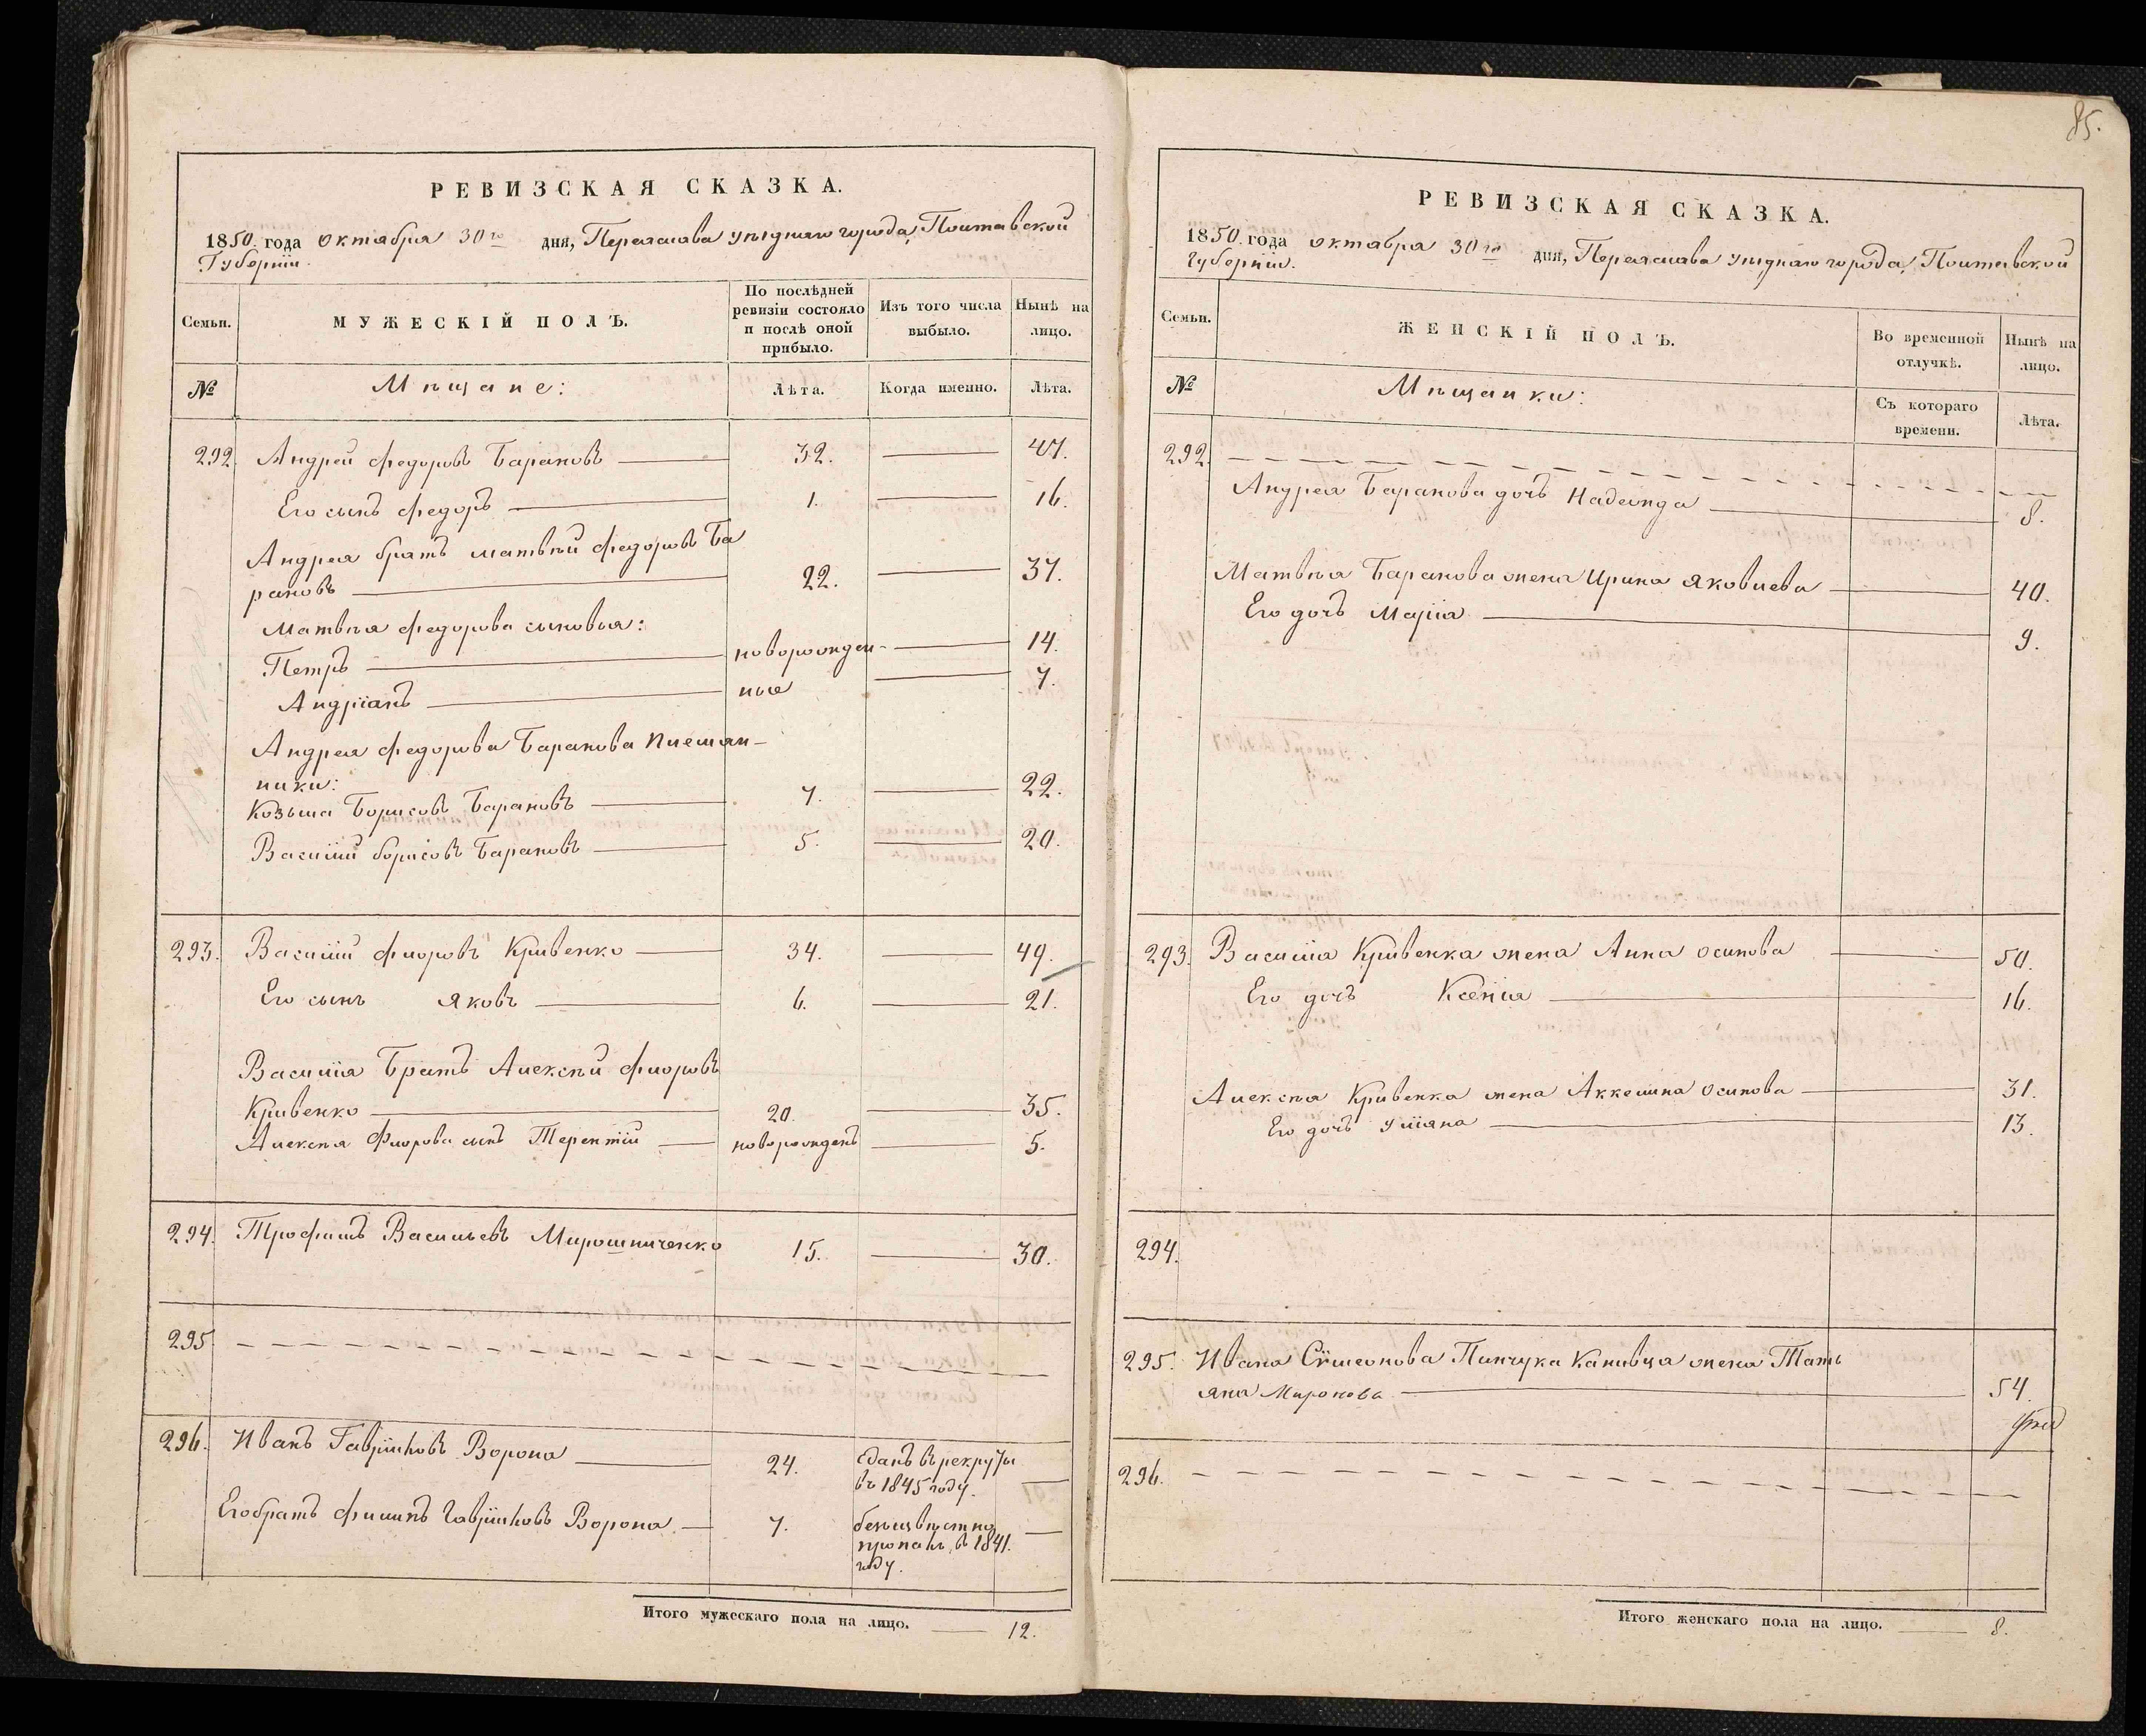 85.
РЕВИЗСКАЯ СКАЗКА.
1850 года октября 30го дня, Переяслава уѣзднаго города, Полтавской
Губерніи.
Семьи. МУЖЕСКІЙ ПОЛЪ. По послѣдней ревизіи состояло и послѣ оной прибыло. Изъ того числа выбыло. Нынѣ на лицо.
№ Мѣщане: Лѣта. Когда именно. Лѣта.
292. Андрей Федоровъ Барановъ 32. 47.
Его сынъ Федоръ 1. 16.
Андрея братъ Матвѣй Федоровъ Ба
рановъ 22. 37.
Матвѣя Федорова сыновья:
Петръ новорожден- 14.
Андріанъ ные 7.
Андрея Федорова Баранова племян-
ники:
Козьма Борисовъ Барановъ 7. 22.
Василій Борисовъ Барановъ 5. 20.
293. Василій Флоровъ Кривенко 34. 49.
Его сынъ Яковъ 6. 21.
Василія Братъ Алексѣй Флоровъ
Кривенко 20. 35.
Алексѣя Флорова сынъ Терентій новорожденъ 5.
294. Трофимъ Васильевъ Мирошниченко 15. 30.
295.
296. Иванъ Гавріиловъ Ворона 24. сданъ въ рекруты
въ 1845 году.
Его братъ Филипъ Гавріиловъ Ворона 7. безъизвѣстно
пропалъ въ 1841.
году.
Итого мужескаго пола на лицо. 12.
РЕВИЗСКАЯ СКАЗКА.
1850 года октября 30го дня, Переяслава уѣзднаго города, Полтавской
Губерніи.
Семьи. ЖЕНСКІЙ ПОЛЪ. Во временной отлучкѣ. Нынѣ на лицо.
№ Мѣщанки: Съ котораго времени. Лѣта.
292.
Андрея Баранова дочь Надежда 8.
Матвѣя Баранова жена Ирина Яковлева 40.
Его дочь Марія 9.
293. Василія Кривенка жена Анна Осипова 50.
Его дочь Ксенія 16.
Алексѣя Кривенка жена Аккелина Осипова 31.
Его дочь Уліяна 13.
294.
295. Ивана Сѵмеонова Пинчука Канивца жена Тать
яна Миронова 54.
296.
Итого женскаго пола на лицо. 8.